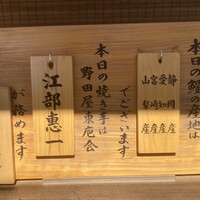 本日の鰻の産地は
静岡産
愛知産
宮崎産
山梨産
でございます
本日の焼き手は
野田屋東庖会
江部惠一
が務めます